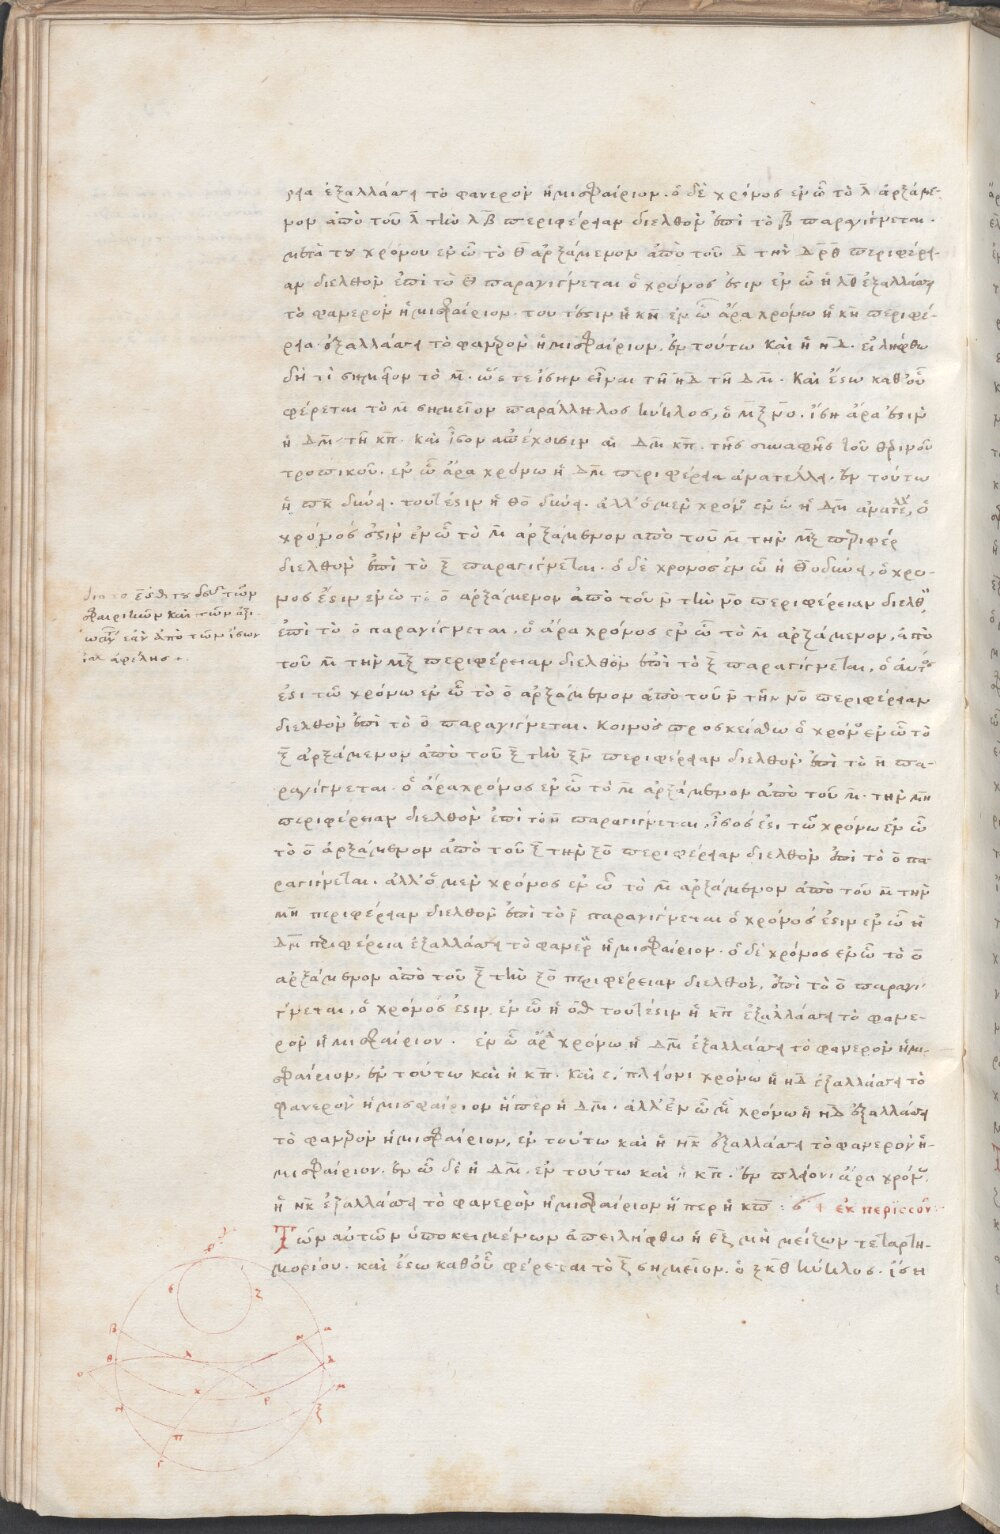 ρεια ἐξαλλάσσει τὸ φανερὸν ἡμισφαίριον. ὁ δὲ χρόνος ἐν ᾧ τὸ λ̄ ἀρξάμε-
νον ἀπὸ τοῦ λ̄ τὴν λ̄β̄ περιφέρειαν διελθὸν ἐπὶ τὸ β̄ παραγίγνεται.
μετὰ τοῦ χρόνου ἐν ᾧ τὸ θ̄ ἀρξάμενον ἀπὸ τοῦ δ̄ τὴν δ̄ρ̄θ̄ περιφέρει-
αν διελθὸν ἐπὶ τὸ θ̄ παραγίγνεται ὁ χρόνος ἐστὶν ἐν ᾧ ἡ λ̄θ̄ ἐξαλλάσσει
τὸ φανερὸν ἡμισφαίριον. τουτέστιν ἡ κ̄η̄ ἐν ᾧ ἄρα χρόνω ἡ κ̄η̄ περιφέ-
ρεια ἐξαλλάσσει τὸ φανερὸν ἡμισφαίριον, ἐν τούτω καὶ ἡ η̄δ̄. εἰλήφθω
δή τι σημεῖον τὸ μ̄. ὥστε ἴσην εἶναι τῆ η̄δ̄ τῆ δ̄μ̄. καὶ ἔστω καθ' οὗ
φέρεται τὸ μ̄ σημεῖον παράλληλος κύκλος, ὁ μ̄ξ̄ν̄ο̄. ἴση ἄρα ἐστὶν
ἡ δ̄μ̄ τῆ κ̄π̄. καὶ ἴσον ἀπέχουσιν αἱ δ̄μ̄ κ̄π̄. τῆς συναφῆς τοῦ θερινοῦ
τροπικοῦ. ἐν ᾧ ἄρα χρόνω ἡ δ̄μ̄ περιφέρεια ἀνατέλλει. ἐν τούτω
ἡ π̄κ̄ δύνει. τουτέστιν ἡ θ̄ο̄ δύνει. ἀλλ' ὁ μὲν χρόνος ἐν ᾧ ἡ δ̄μ̄ ἀνατέλλει, ὁ
χρόνος ἐστὶν ἐν ᾧ τὸ μ̄ ἀρξάμενον ἀπὸ τοῦ μ̄ τὴν μ̄ξ̄ περιφέρ
διελθὸν ἐπὶ τὸ ξ̄ παραγίγνεται. ὁ δὲ χρόνος ἐν ᾧ ἡ θ̄ο̄ δύνει, ὁ χρο-
νος ἐστὶν ἐν ᾧ τὸ ο̄ ἀρξάμενον ἀπὸ τοῦ ν̄ τὴν ν̄ο̄ περιφέρειαν διελθὸν
ἐπὶ τὸ ο̄ παραγίγνεται, ὁ ἄρα χρόνος ἐν ᾧ τὸ μ̄ ἀρξάμενον, ἀπὸ
τοῦ μ̄ τὴν μ̄ξ̄ περιφέρειαν διελθὸν ἐπὶ τὸ ξ̄ παραγίγνεται, ὁ αὐτός
ἐστι τῶ χρόνω ἐν ᾧ τὸ ο̄ ἀρξάμενον ἀπὸ τοῦ ν̄ τὴν ν̄ο̄ περιφέρειαν
διελθὸν ἐπὶ τὸ ο̄ παραγίγνεται. κοινὸς προσκείσθω ὁ χρόνος ἐν ᾧ τὸ
ξ̄ ἀρξάμενον ἀπὸ τοῦ ξ̄ τὴν ξ̄ν̄ περιφέρειαν διελθὸν ἐπὶ τὸ ν̄ πα-
ραγίγνεται. ὁ ἄρα χρόνος ἐν ᾧ τὸ μ̄ ἀρξάμενον ἀπὸ τοῦ μ̄. τὴν μ̄ν̄
περιφέρειαν διελθὸν ἐπὶ τὸ ν̄ παραγίγνεται, ἴσός ἐστι τῶ χρόνω ἐν ᾧ
τὸ ο̄ ἀρξάμενον ἀπὸ τοῦ ξ̄ τὴν ξ̄ο̄ περιφέρειαν διελθὸν ἐπὶ τὸ ο̄ πα-
ραγίγνεται. ἀλλ' ὁ μὲν χρόνος ἐν ᾧ τὸ μ̄ ἀρξάμενον ἀπὸ τοῦ μ̄ τὴν
μ̄ν̄ περιφέρειαν διελθὸν ἐπὶ τὸ ν̄ παραγίγνεται ὁ χρόνός ἐστιν ἐν ᾧ ἡ
δ̄μ̄ περιφέρεια ἐξαλλάσσει τὸ φανερὸν ἡμισφαίριον. ὁ δὲ χρόνος ἐν ᾧ τὸ ο̄
ἀρξάμενον ἀπὸ τοῦ ξ̄ τὴν ξ̄ο̄ περιφέρειαν διελθὸν, ἐπὶ τὸ ο̄ παραγί-
γνεται, ὁ χρόνός ἐστιν ἐν ᾧ ἡ ο̄θ̄ τουτέστιν ἡ κ̄π̄ ἐξαλλάσσει τὸ φανε-
ρὸν ἡμισφαίριον. ἐν ᾧ ἄρα χρόνω ἡ δ̄μ̄ ἐξαλλάσσει τὸ φανερὸν ἡμι-
σφαίριον, ἐν τούτω καὶ ἡ κ̄π̄. καὶ ἐν πλείονι χρόνω ἡ η̄δ̄ ἐξαλλάσσει τὸ
φανερὸν ἡμισφαίριον ἤπερ ἡ δ̄μ̄. ἀλλ' ἐν ᾧ μὲν χρόνω ἡ η̄δ̄ ἐξαλλάσσει
τὸ φανερὸν ἡμισφαίριον, ἐν τούτω καὶ ἡ η̄κ̄ ἐξαλλάσσει τὸ φανερὸν ἡ-
μισφαίριον. ἐν ᾧ δὲ ἡ δ̄μ̄. ἐν τούτω καὶ ἡ κ̄π̄. ἐν πλείονι ἄρα χρόνω
ἡ η̄κ̄ ἐξαλλάσσει τὸ φανερὸν ἡμισφαίριον ἤπερ ἡ κ̄π̄ : ἐκ περισσοῦ
Τῶν αὐτῶν ὑποκειμένων ἀπειλήφθω ἡ ε̄ξ̄ μὴ μείζων τεταρτη-
μορίου. καὶ ἔστω καθ' οὗ φέρεται τὸ ξ̄ σημεῖον. ὁ ξ̄κ̄θ̄ κύκλος. ἴση
διὰ τὸ τοῦ τῶν
σφαιρικῶν καὶ τῶν ἀξι-
ωμάτων ἐὰν ἀπὸ τῶν ἴσων
ἴσα ἀφέλης +.
ε ζ
β α
θ λ η δ
ο κ ρ μ
ν π ξ
γ